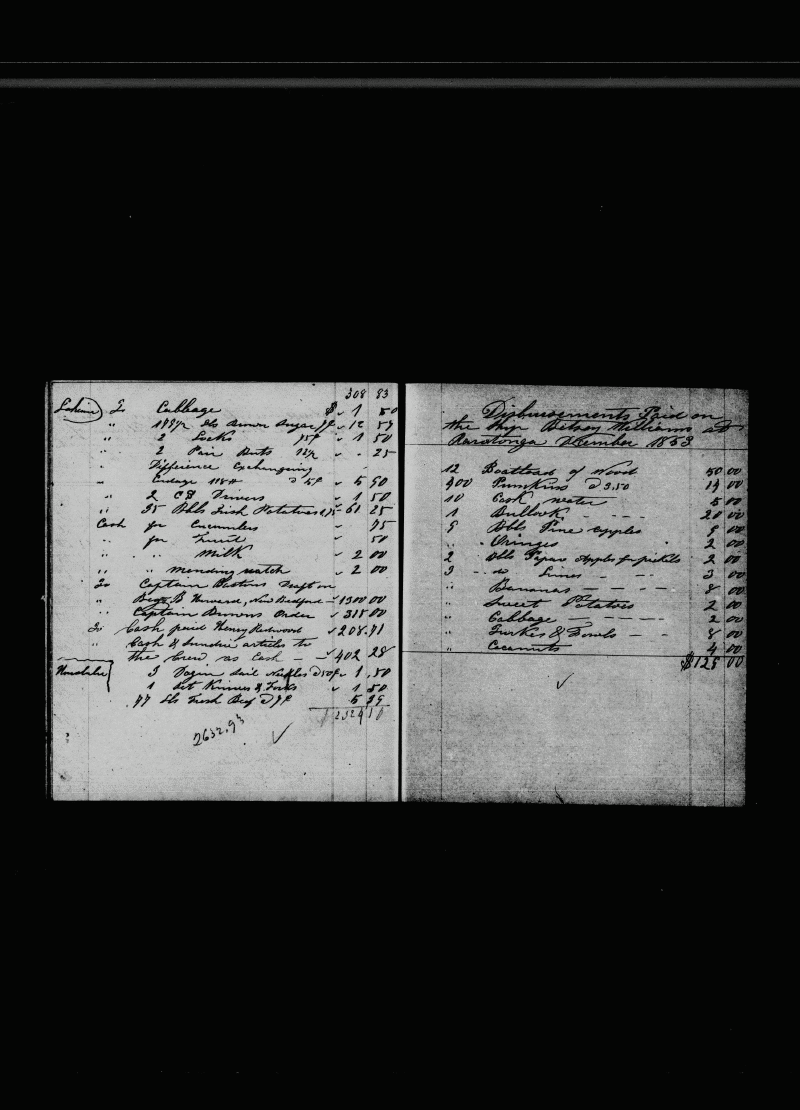 308 83
Lahina To Cabbage $ 1 50
" 179½ lbs Brown Sugar 7¢ 12 57
" 2 Locks 75¢ 1 50
" 2 Pair Butts 12½ " 25
" Difference Exchanging
" Cordage 118 # @ 5¢ 5 90
" 2 Drivers 1 50
" 35 Bbls Irish Potatoes 1.75 61 25
Cash for Cucumbers 75
" for Fruit 50
" " Milk 2 00
" " mending watch 2 00
To Captain Draft on
" B. Howard, New Bedford 1300 00
" Captain Browns Order 315 00
To Cash paid Henry Redwood 208.71
" Cash & Sundrie articles to
the Crew as Cash 402 28
Honolulu 3 Dozin Sail Nedles @ 50¢ 1.50
1 Set Knives & Forks 1 50
77 lbs Fresh Beef @ 7¢ 5 39
2324 10
2632.93
Disbursements Paid on
the Ship Betsey Williams at
Raratonga December 1853
12 Boatload of Wood 50 00
400 Pumkins @ 3.50 14 00
10 Cask water 5 00
1 Bullock 20 00
9 Bbls Pine apples 9 00
" Oringes 2 00
2 Bbls Papaw Apples for pickels 2 00
3 " do Limes 3 00
" Bananas 8 00
" Sweet Potatoes 2 00
" Cabbage 2 00
" Turkies & Fowls 8 00
" Cocanuts 4 00
$125 00